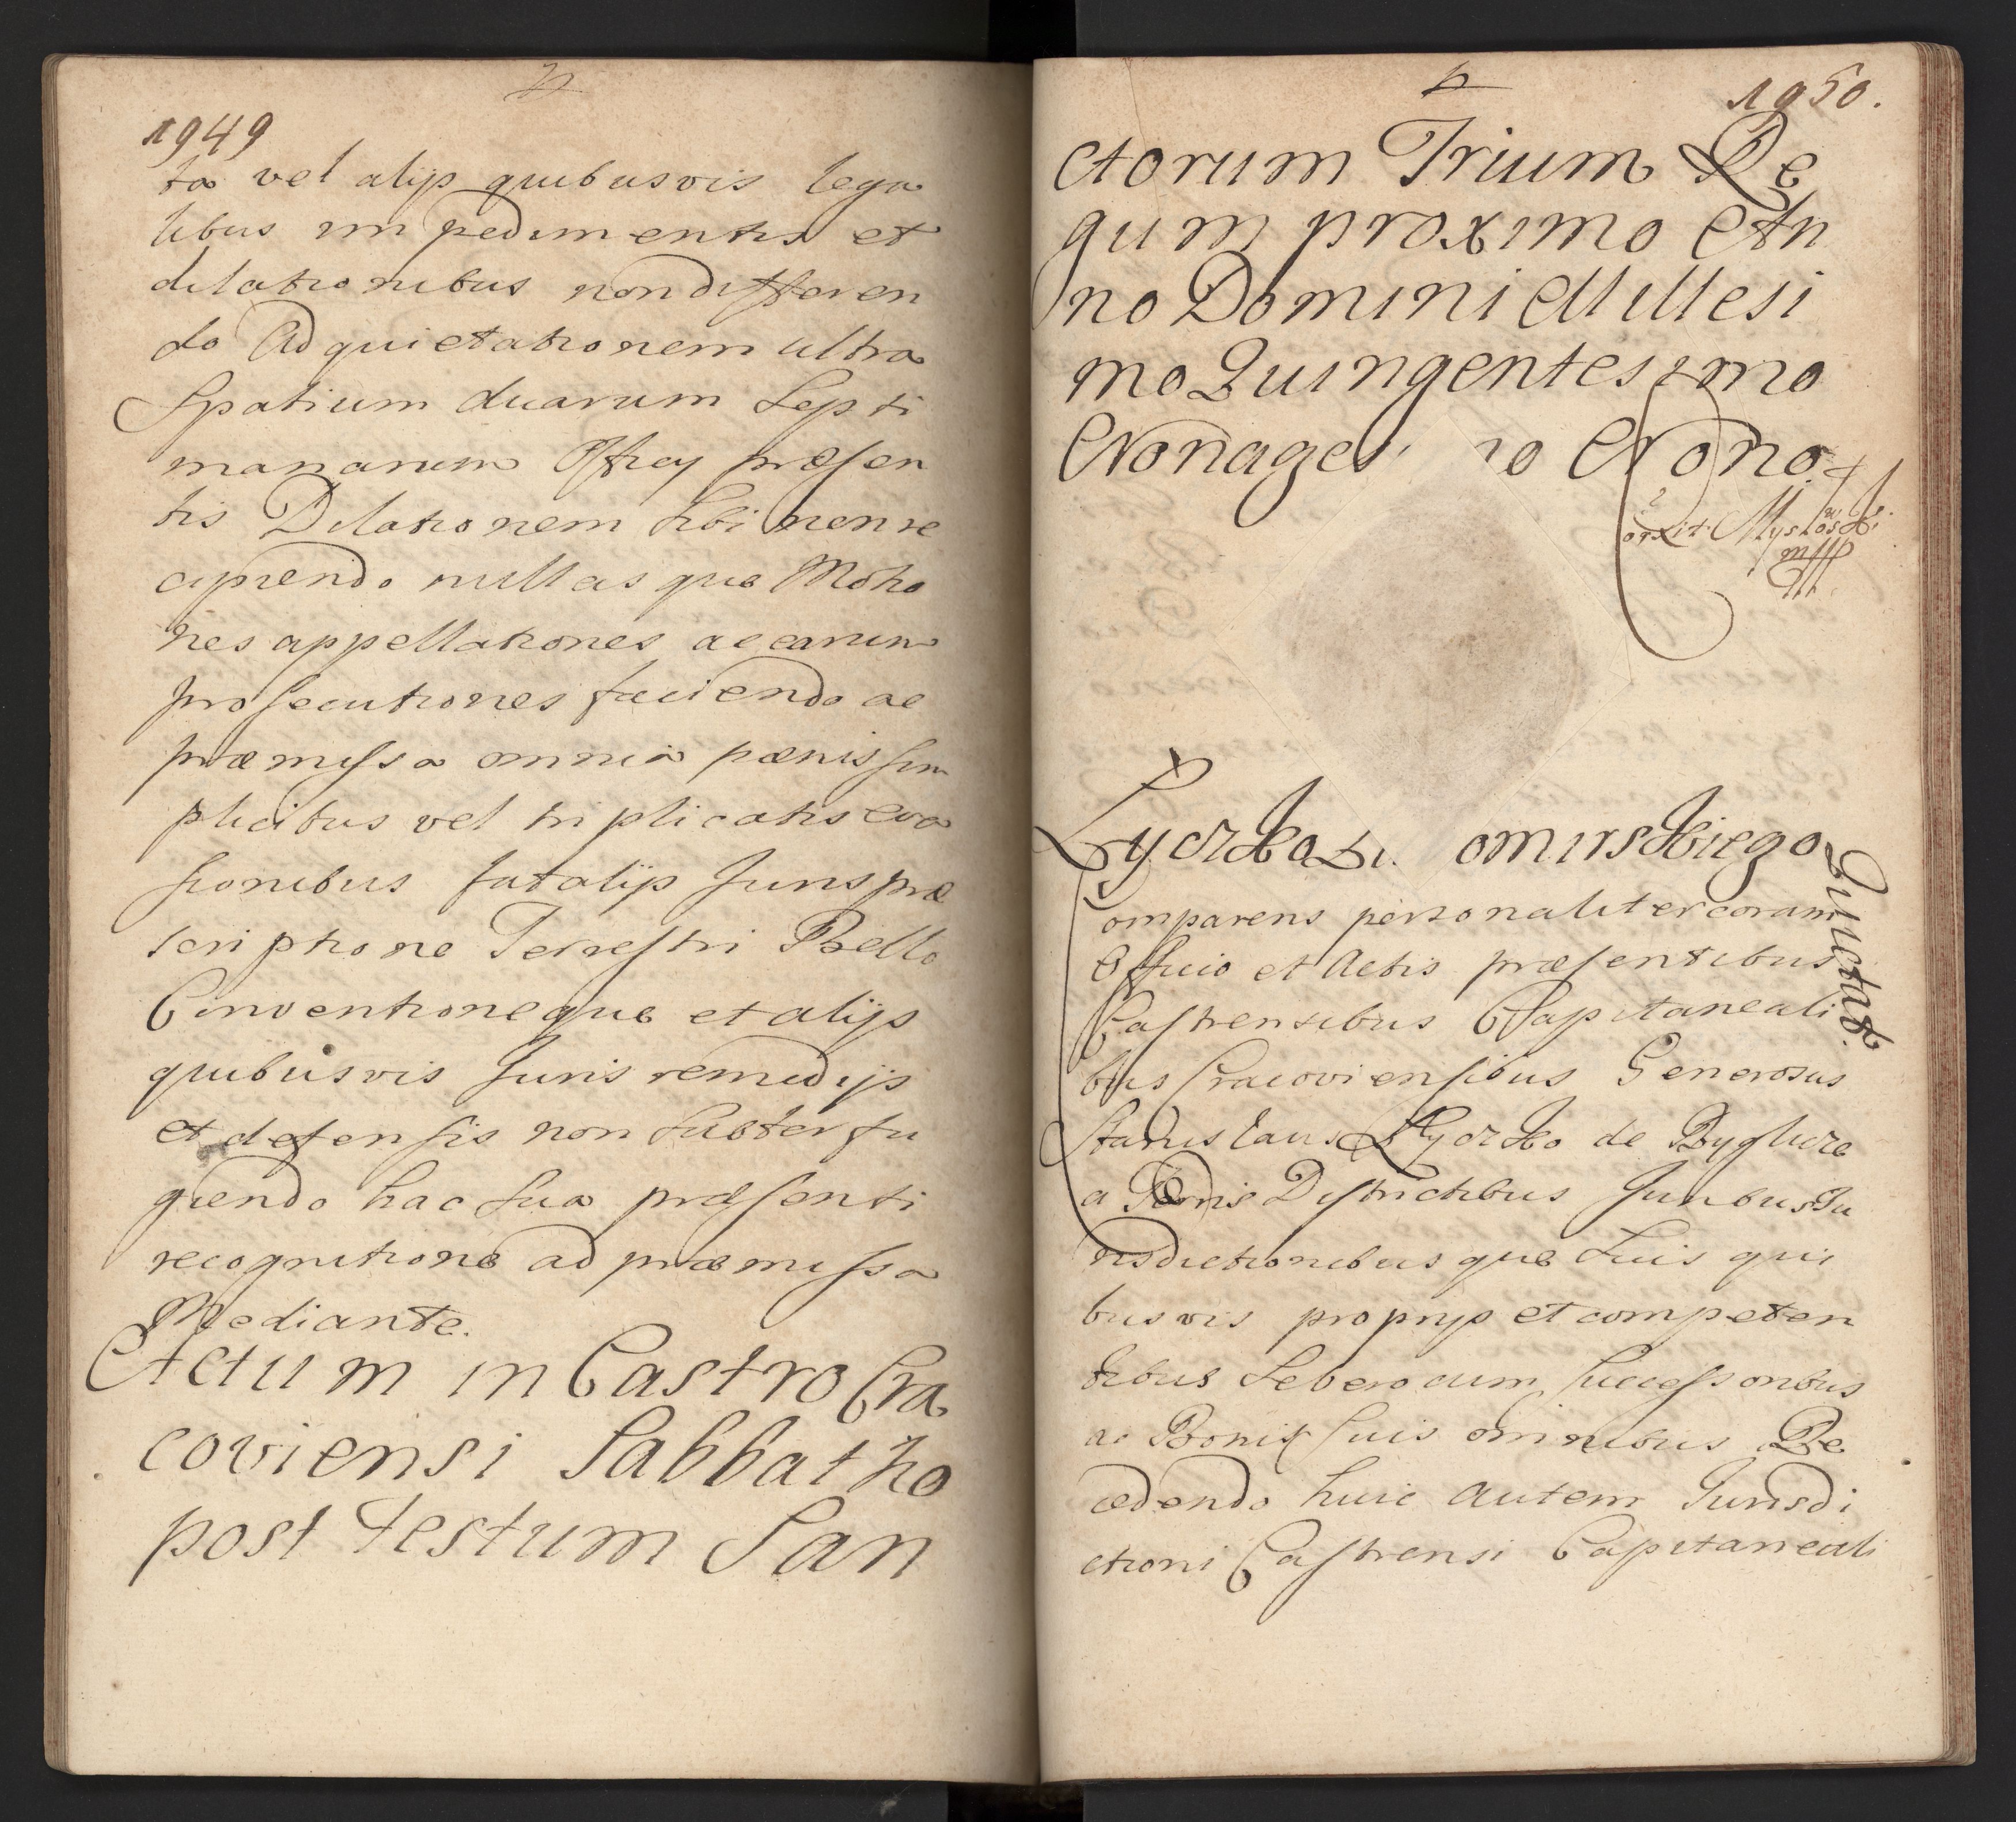 1949
ta vel alijs quibusvis lega
libus impedimentis et
dilationibus non differen
do Ad quietationem ultra
Spatium duarum Septi
manarum Officij præsen
tis Dilationem Sibi non re
cipiendo nullasque Motio
nes appellationes ac earum
prosecutiones faciendo ac
præmissa omnia pænis sim
plicibus vel triplicatis eva
sionibus fatalijs Juris præ
scriptione Terrestri Bello
Conventioneque et alijs
quibusvis Juris remedijs
et defensis non Subterfu
giendo hac Sua præsenti
recognitione ad præmissa
Mediante.
Actum in Castro Cra
coviensi Sabbatho
post Festum San
1950.
ctorum Trium Re
gum proximo An
no Domini Millesi
mo Quingentesimo
Nonages mo Nono.
Lyczko Zi. omirskiego
Quietat.
Comparens personaliter coram
Officio et Actis præsentibus
Castrensibus Capitaneali
bus Cracoviensibus Generosus
Stanislaus Lyczko de Ryglice
a Terris Districtibus Juribus Ju
risdictionibusque Suis qui
busvis proprijs et competen
tibus Se bero cum Successoribus
ac Bonis Suis omnibus Re
cedendo huic autem Jurisdi
ctioni Castrensi Capitaneali